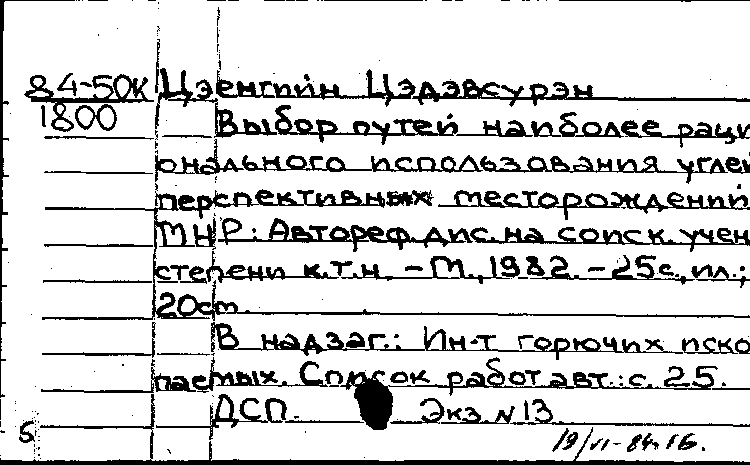 84-50К Цэенгийн Цэдэвсурэн
1800 Выбор путей наиболее раци
онального использования углей
перспективных месторождений
МНР: Автореф. дис. на соиск. учен
степени к.т.н. - М., 1982. - 25с., ил.;
20cm.
В надзаг.: Ин-т горючих иско
паемых. Список работ авт.: с. 25.
ДСП. Экз. N 13.
5
19/VI-84г.